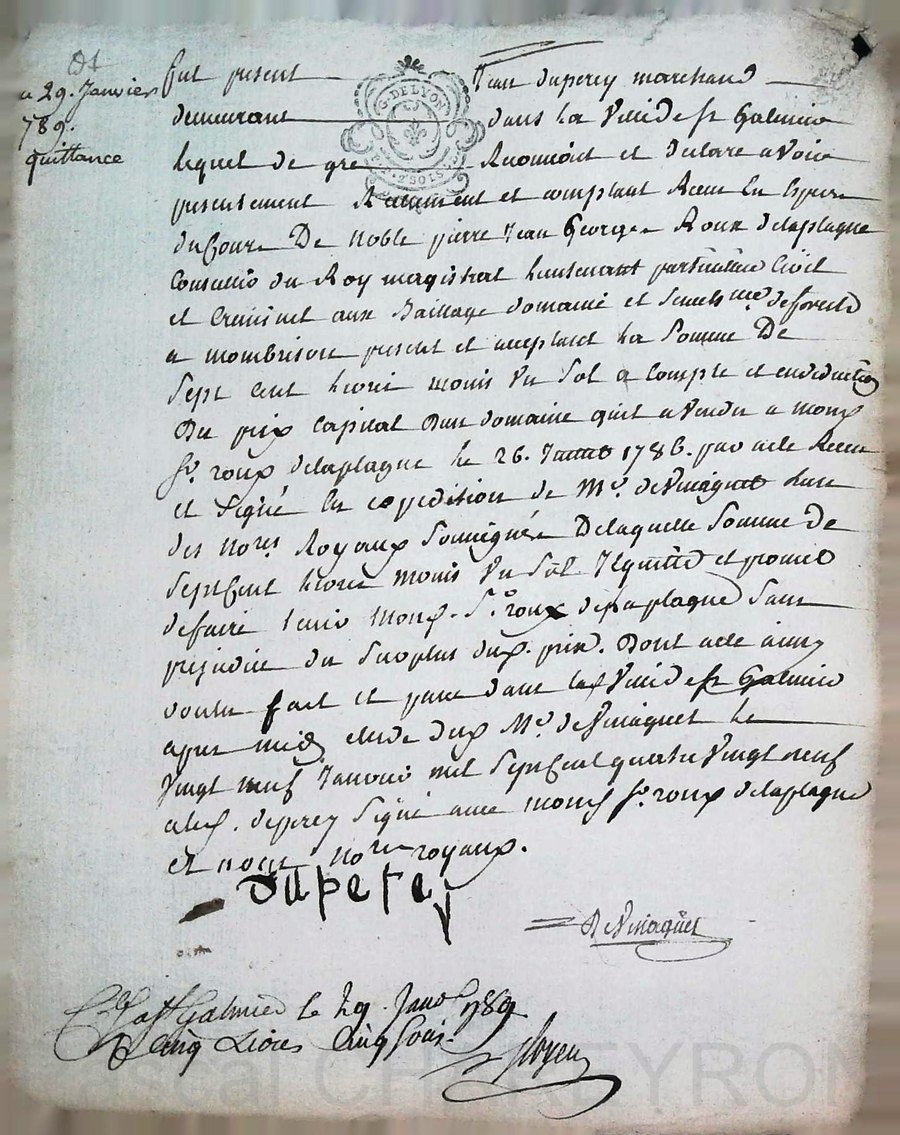 Dt
a 29. Janvier
789.
quittance
G. DE LYON
2 SOLS
fut present Jean duperey marchand
demeurant dans la Ville de st Galmier
lequel de gre Reconnoit et declare avoir
presentement Reelement et comptant Receu en espece
du Cours De noble pierre Jean George Roux delaplagne
Conseiller du Roy magistrat lieutenant particulier Civil
et Criminel aux Baillage domaine et Senech.ée de forest
a mombrison present et acceptant la somme De
Sept cent livres moins un sol a Compte et en deduction
Du prix Capital dun domaine quil a vendu a mond
sr. roux delaplagne le 26. 1786. par acte Receu
et signé en expedition de Me. deVinaguet lun
des nores Royaux soussignés De laquelle somme de
sept Cent livres moins un sol quitte et promet
de faire tenir mond. Sr. roux delaplagne sans
prejudice du surplus dud. prix. Dont acte ainsy
voulu fait et passé dans la Ville de st Galmier
apres midy etude dud Me. deVinaguet le
Vingt neuf Janvier mil sept Cent quatre Vingt neuf
aled. duperey signé avec mond Sr. roux delaplagne
et nous nores royaux.
duperey
DeVinaguet
Clle a st Galmier le 29. Janv 1789
R Cinq Livres Cinq sous.
CHALEYRON